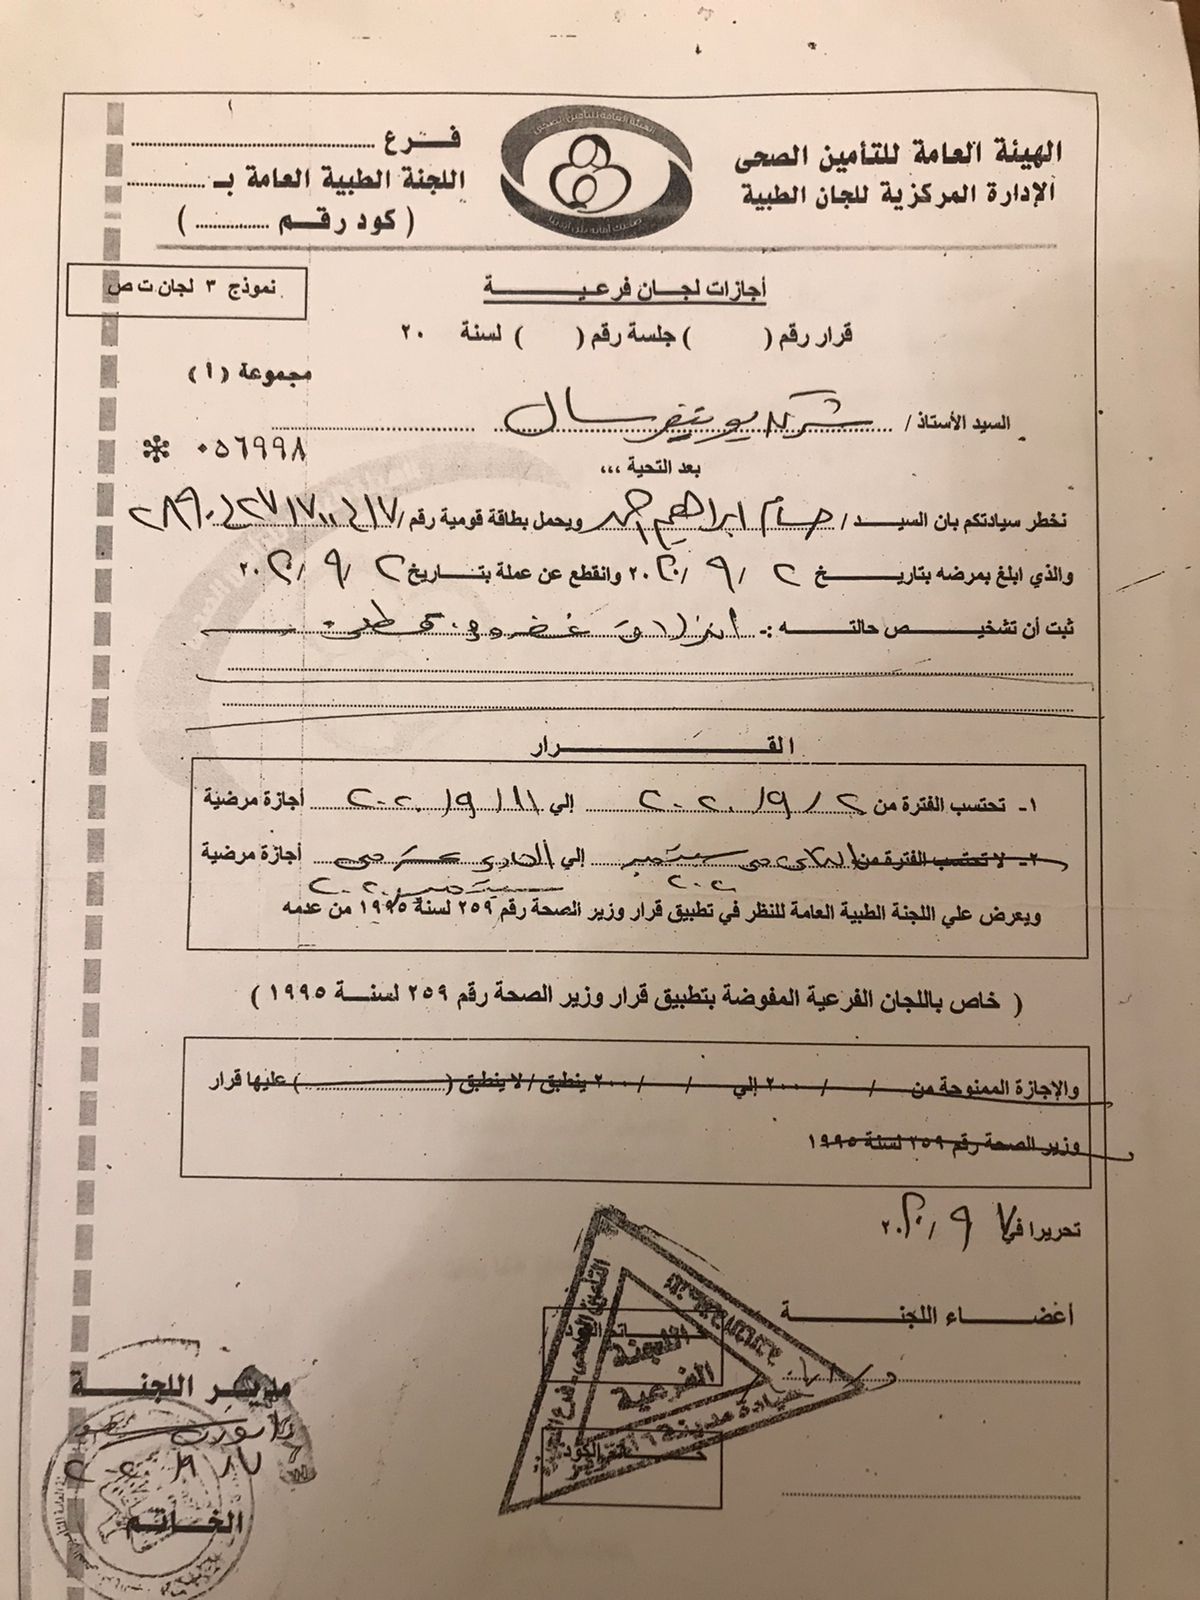 الهيئة العامة للتأمين الصحى
الإدارة المركزية للجان الطبية
فرع ..............
اللجنة الطبية العامة بـ ..............
( كود رقم .............. )
نموذج ٣ لجان ت ص
أجازات لجان فرعية
قرار رقم (       ) جلسة رقم (       ) لسنة ٢٠
مجموعة (أ)
السيد الأستاذ / شركة يونيفرسال
٠٥٦٩٩٨
بعد التحية ،،،
نخطر سيادتكم بان السيد / حسام ابراهيم احمد ويحمل بطاقة قومية رقم /
والذي ابلغ بمرضه بتاريخ ٢ / ٩ / ٢٠٢٠ وانقطع عن عملة بتاريخ ٢ / ٩ / ٢٠٢٠
ثبت أن تشخيص حالته :- انزلاق غضروفى قطنى
القرار
١- تحتسب الفترة من ٢ / ٩ / ٢٠٢٠ إلي ١١ / ٩ / ٢٠٢٠ أجازة مرضية
٢- لا تحتسب الفترة من الثانى من سبتمبر ٢٠٢٠ إلي الحادى عشر من سبتمبر ٢٠٢٠ أجازة مرضية
ويعرض علي اللجنة الطبية العامة للنظر في تطبيق قرار وزير الصحة رقم ٢٥٩ لسنة ١٩٩٥ من عدمه
( خاص باللجان الفرعية المفوضة بتطبيق قرار وزير الصحة رقم ٢٥٩ لسنة ١٩٩٥ )
والإجازة الممنوحة من / / ٢٠٠ إلي / / ٢٠٠ ينطبق / لا ينطبق (..............) عليها قرار
وزير الصحة رقم ٢٥٩ لسنة ١٩٩٥
تحريرا في ٧ / ٩ / ٢٠٢٠
أعضاء اللجنة
اللجنة
الفرعية
عيادة مدينة ٦
مدير اللجنة
الخاتم